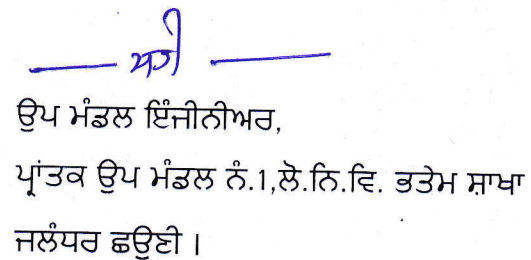 ਸਹੀ
ਉਪ ਮੰਡਲ ਇੰਜੀਨੀਅਰ,
ਪ੍ਰਾਂਤਕ ਉਪ ਮੰਡਲ ਨੰ.1,ਲੋ.ਨਿ.ਵਿ. ਭਤੇਮ ਸ਼ਾਖਾ
ਜਲੰਧਰ ਛਉਣੀ ।